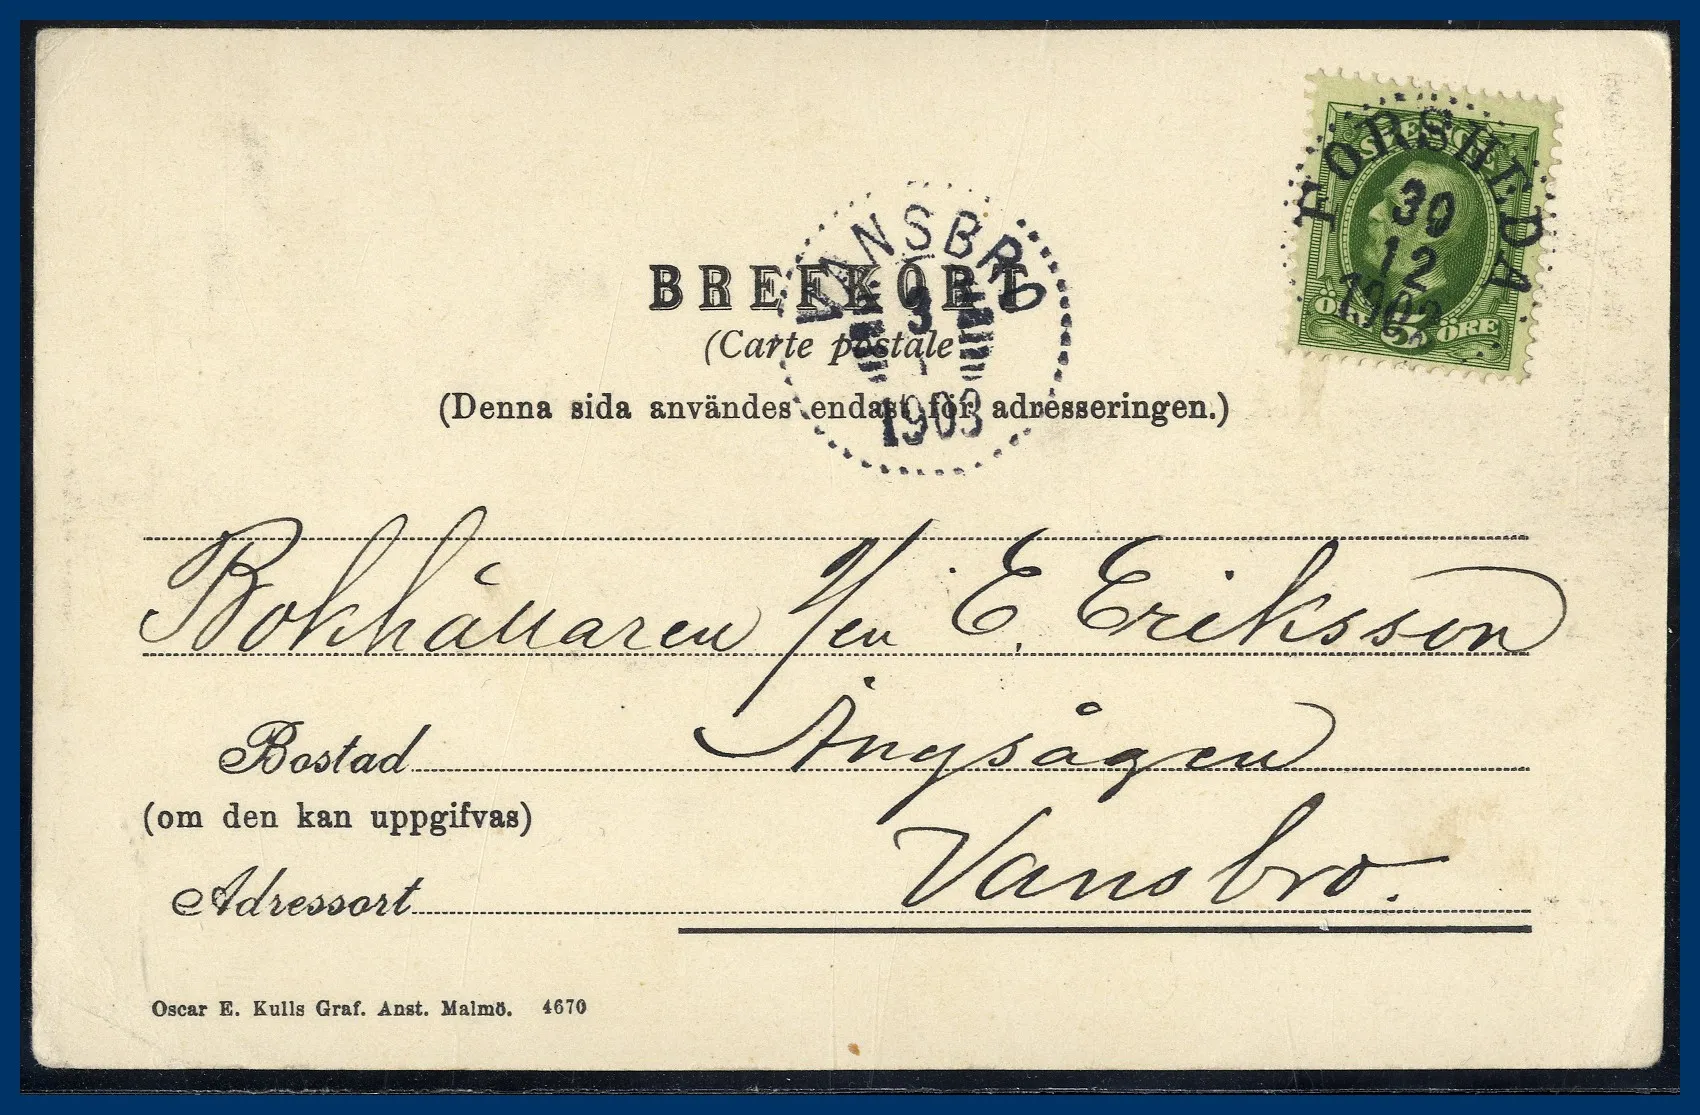 SVERIGE
FORSHEDA
30
12
1902
ÖRE 5 ÖRE
VANSBRO
3
1
1903
BREFKORT
(Carte postale)
(Denna sida användes endast för adresseringen.)
Bokhållaren H/en E. Eriksson
Bostad Ångsågen
(om den kan uppgifvas)
Adressort Vansbro.
Oscar E. Kulls Graf. Anst. Malmö. 4670